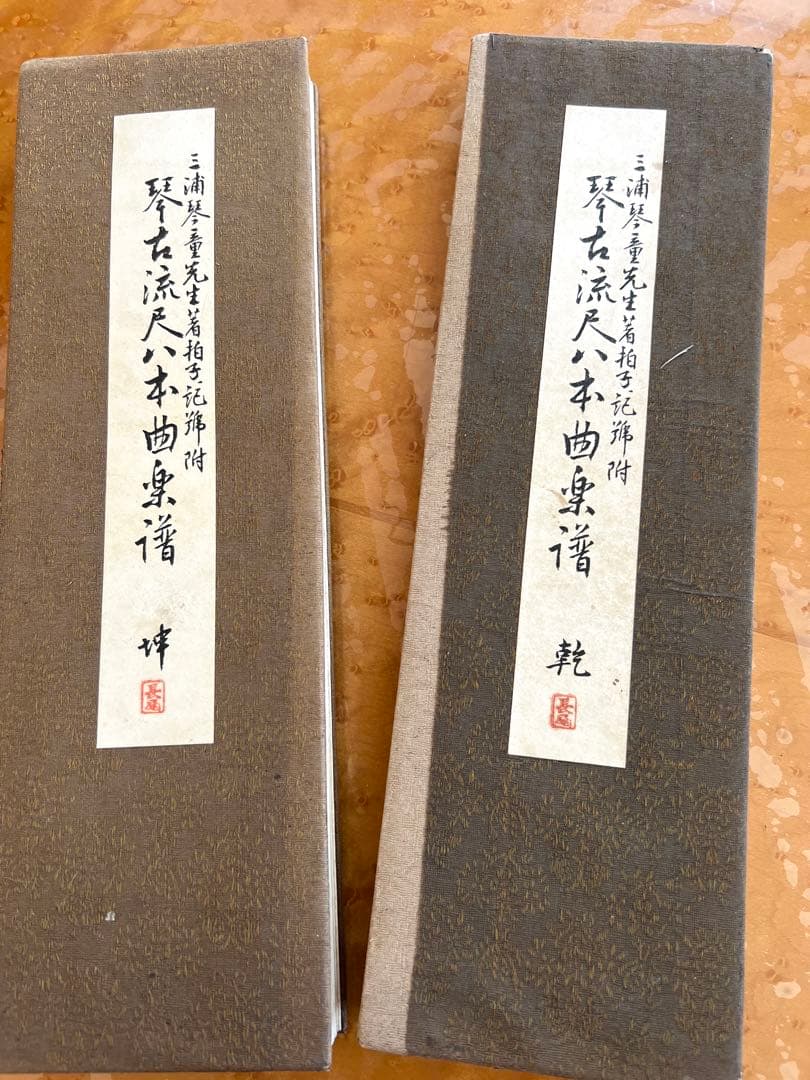 三浦琴童先生著拍子記號附
琴古流尺八本曲楽譜
乾
長尾
三浦琴童先生著拍子記號附
琴古流尺八本曲楽譜
坤
長尾